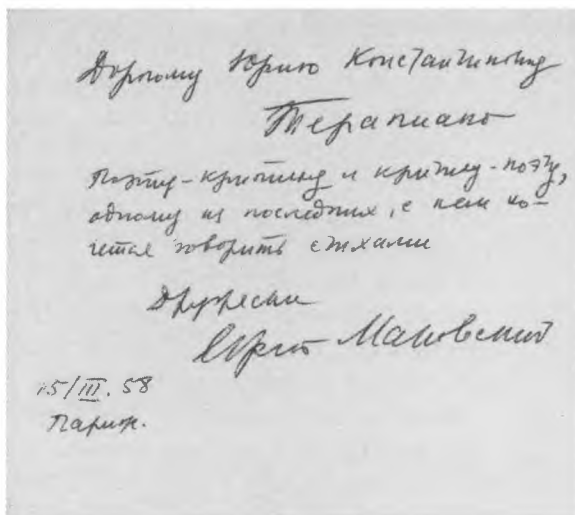 Дорогому Юрию Константиновичу
Терапиано
Поэту-критику и критику-поэту,
одному из последних, с кем хо-
чется говорить стихами
Дружески
Сергей Маковский
15/III. 58
Париж.